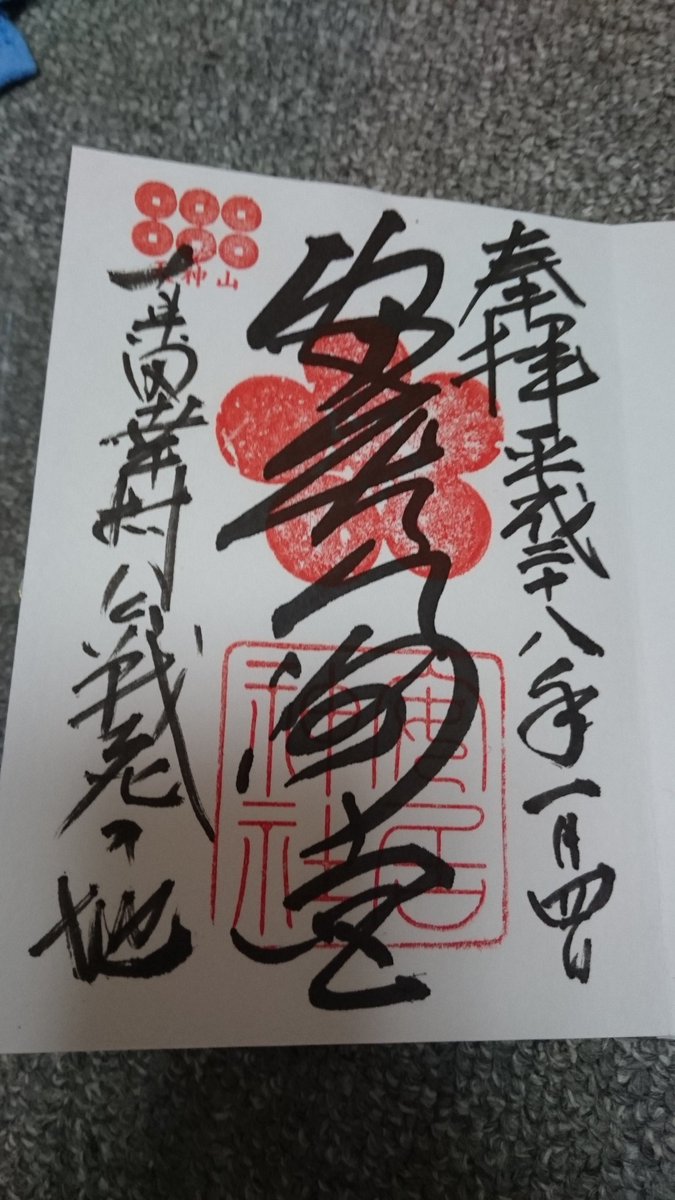 奉拝 平成二十八年一月四日
安居天満宮
安居神社
天神山
真田幸村公戦死之地